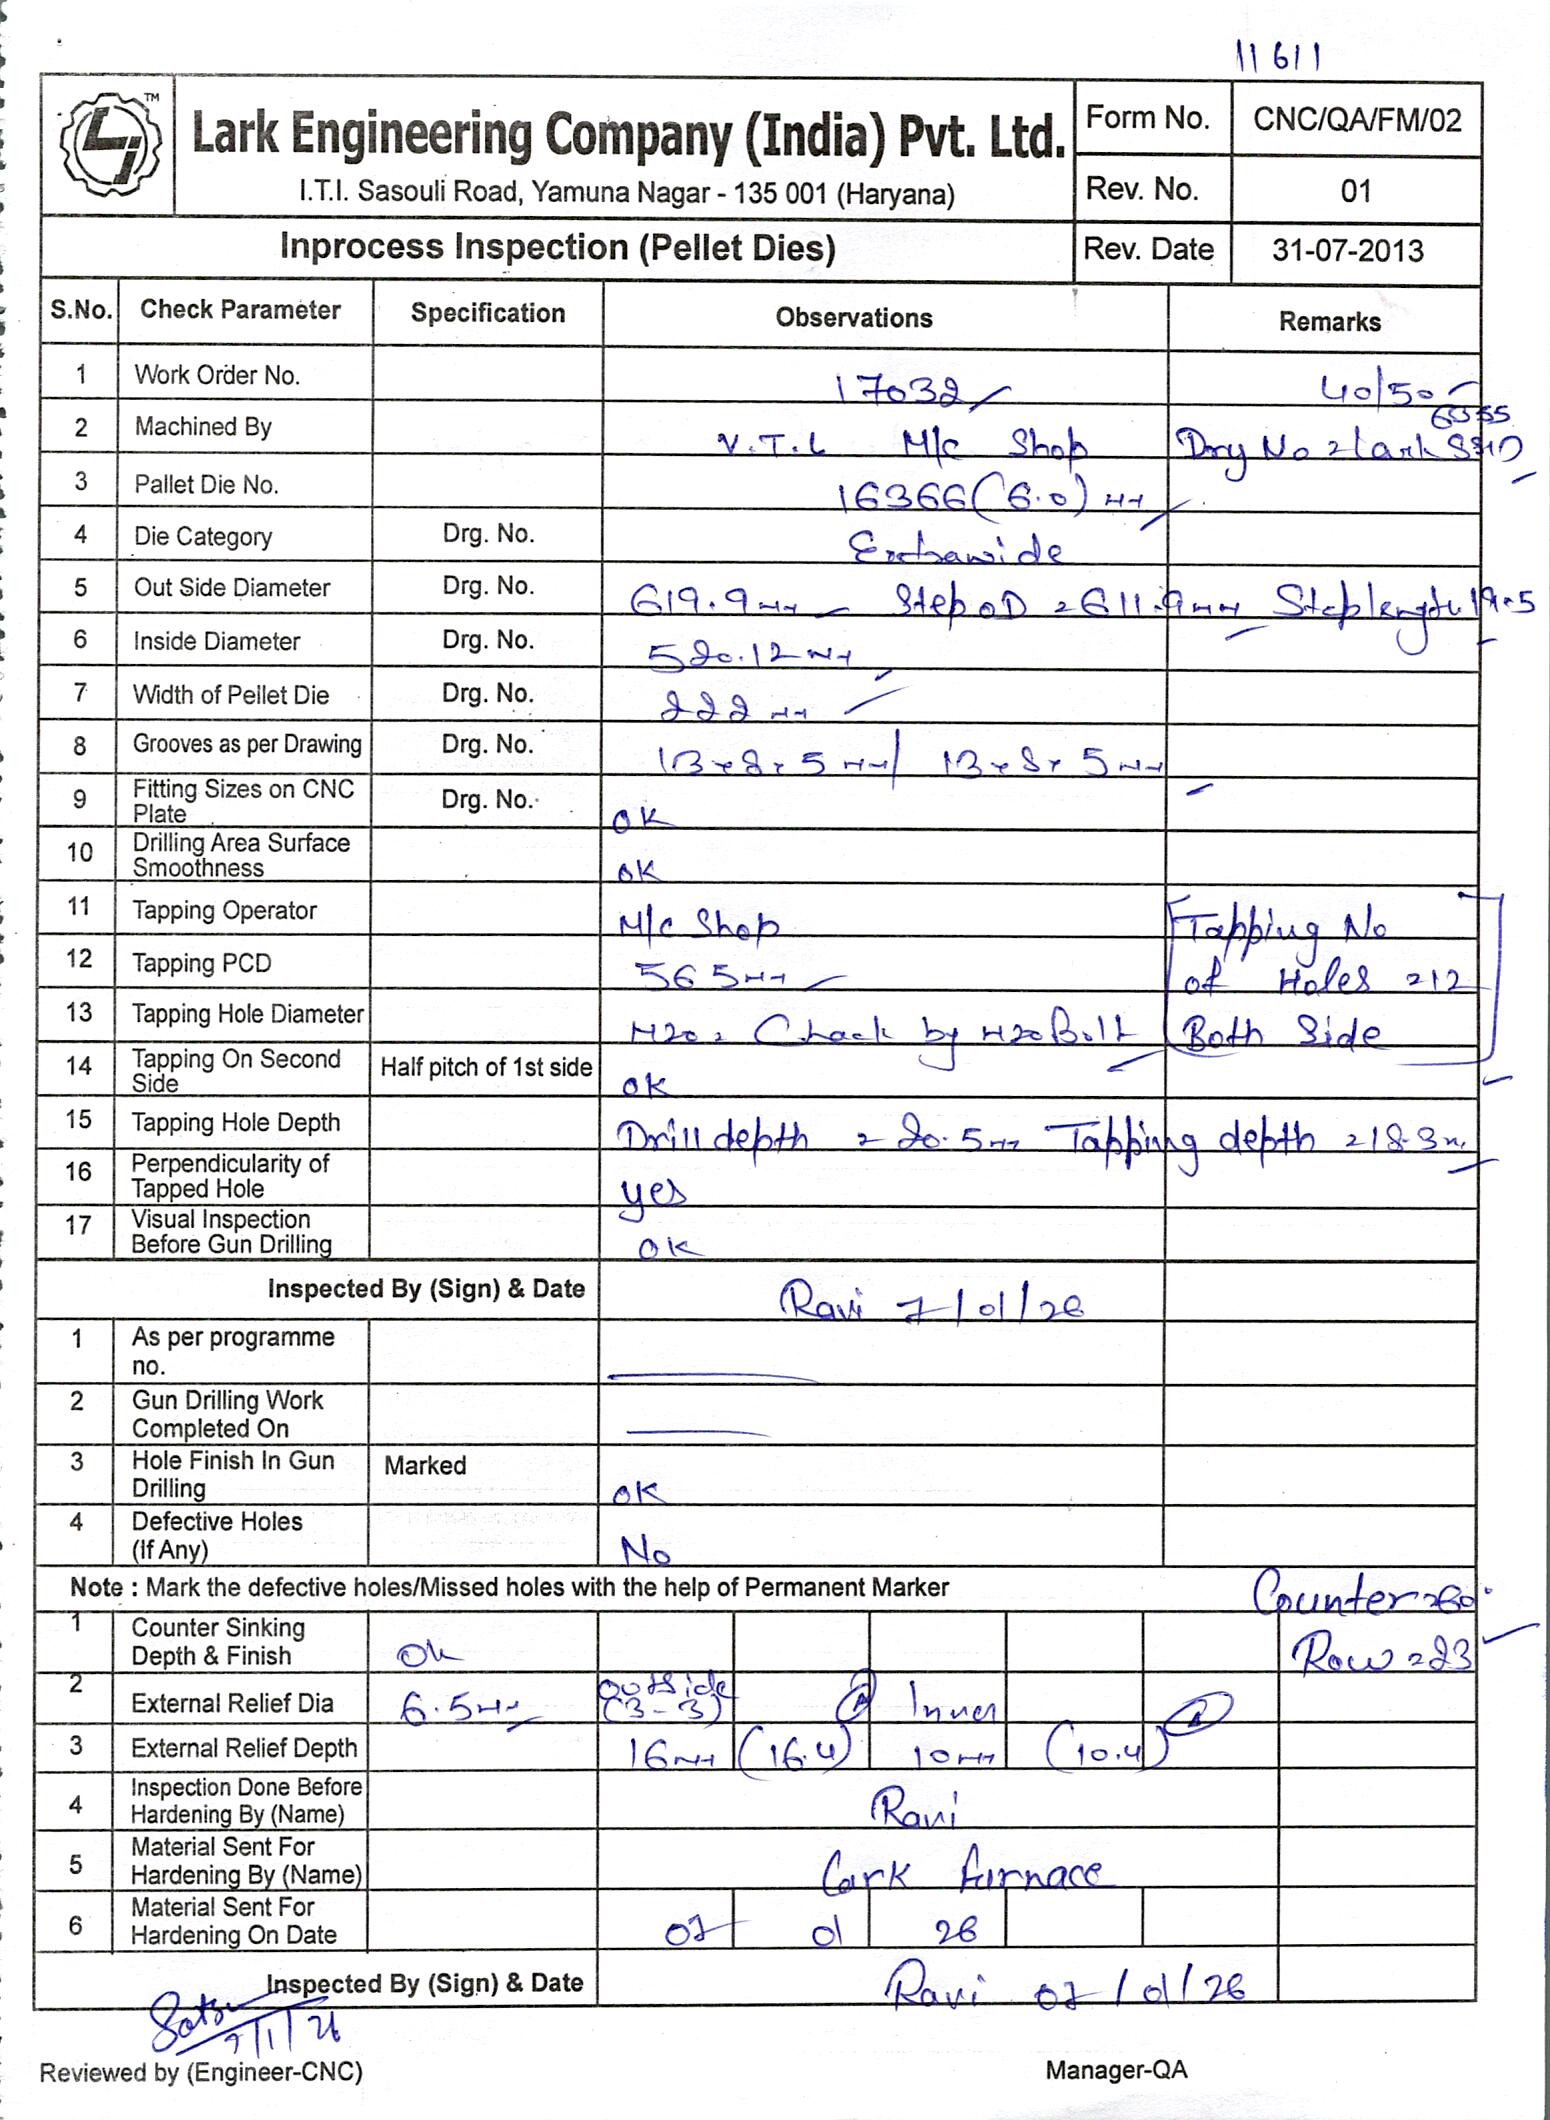 11611
TM
Lark Engineering Company (India) Pvt. Ltd.
I.T.I. Sasouli Road, Yamuna Nagar - 135 001 (Haryana)
Form No. CNC/QA/FM/02
Rev. No. 01
Inprocess Inspection (Pellet Dies) Rev. Date 31-07-2013
S.No. Check Parameter Specification Observations Remarks
1 Work Order No. 17032 40/50
2 Machined By V.T.L M/c Shop Drg No = lark
3 Pallet Die No. 16366 (6.0) mm
4 Die Category Drg. No. Extrawide
5 Out Side Diameter Drg. No. 619.9mm Step OD = 611.9mm Step length 19.5
6 Inside Diameter Drg. No. 520.12mm
7 Width of Pellet Die Drg. No. 222 mm
8 Grooves as per Drawing Drg. No. 13x8x5 mm / 13x8x5mm
9 Fitting Sizes on CNC Plate Drg. No. OK
10 Drilling Area Surface Smoothness OK
11 Tapping Operator M/c Shop Tapping No
12 Tapping PCD 565mm of Holes = 12
13 Tapping Hole Diameter M20 = Chack by M20 Bolt Both Side
14 Tapping On Second Side Half pitch of 1st side OK
15 Tapping Hole Depth Drill depth = 20.5mm Tapping depth = 18.3m
16 Perpendicularity of Tapped Hole yes
17 Visual Inspection Before Gun Drilling OK
Inspected By (Sign) & Date Ravi 7/01/26
1 As per programme no.
2 Gun Drilling Work Completed On
3 Hole Finish In Gun Drilling Marked OK
4 Defective Holes (If Any) No
Note : Mark the defective holes/Missed holes with the help of Permanent Marker Counter = 60°
1 Counter Sinking Depth & Finish Ok Row = 23
2 External Relief Dia 6.5mm outside (3-3) Inner
3 External Relief Depth 16mm (16.4) 10mm (10.4)
4 Inspection Done Before Hardening By (Name) Ravi
5 Material Sent For Hardening By (Name) Lark furnace
6 Material Sent For Hardening On Date 07 01 26
Inspected By (Sign) & Date Ravi 07/01/26
7/1/26
Reviewed by (Engineer-CNC) Manager-QA